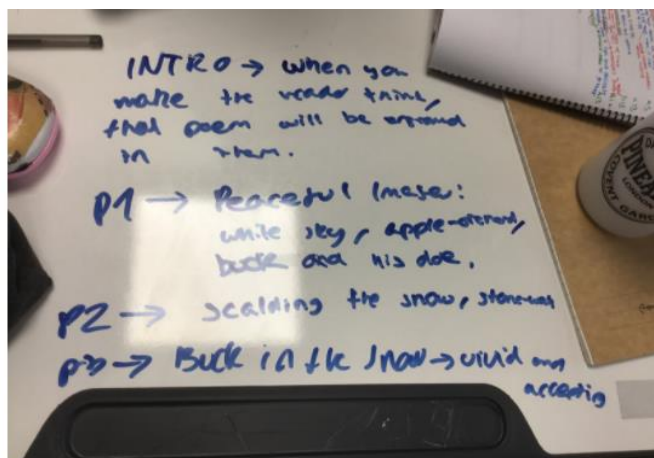 INTRO → when you
make the reader think,
that poem will be
in them.
P1 → Peaceful Image:
white sky, apple-orchard,
buck and his doe.
P2 → Scalding the snow,
p3 → Buck in the snow → vivid and
PINE
LONDON
COVENT
GARD